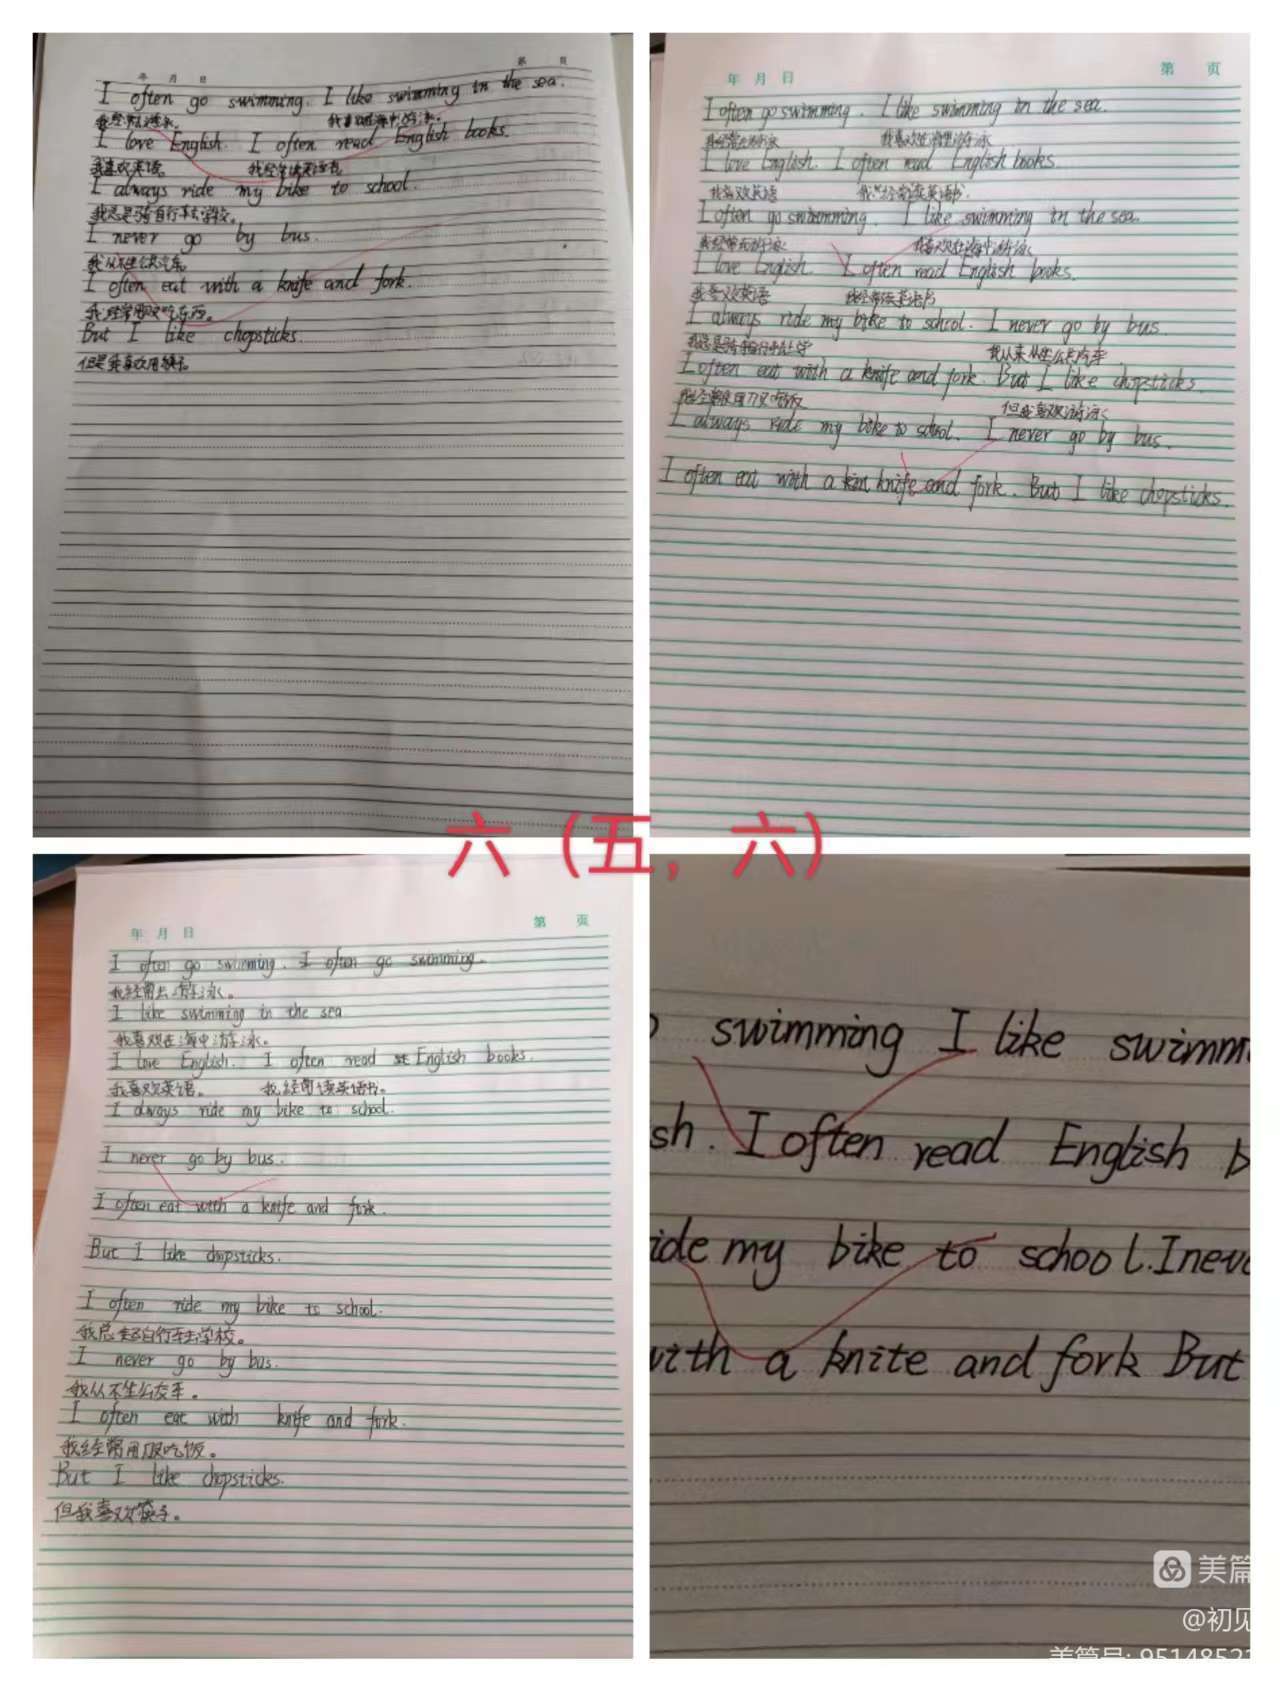 年 月 日 第 页
I often go swimming. I like swimming in the sea.
我经常去游泳。 我喜欢在海中游泳。
I love English. I often read English books.
我喜欢英语。 我经常读英语书
I always ride my bike to school.
我总是骑自行车去学校。
I never go by bus.
我从不坐公交车。
I often eat with a knife and fork.
我经常用刀叉吃东西。
But I like chopsticks.
但是我喜欢用筷子
年 月 日 第 页
I often go swimming. I like swimming in the sea.
我经常去游泳 我喜欢在海里游泳
I love English. I often read English books.
我喜欢英语 我经常读英语书.
I often go swimming. I like swimming in the sea.
我经常去游泳 我喜欢在海中游泳
I love English. I often read English books.
我喜欢英语 我经常读英语书
I always ride my bike to school. I never go by bus.
我总是骑自行车上学 我从来不坐公共汽车
I often eat with a knife and fork. But I like chopsticks.
我经常使用刀叉吃饭 但我喜欢游泳
I always ride my bike to school. I never go by bus.
I often eat with a knife and fork. But I like chopsticks.
六（五，六）
年 月 日 第 页
I often go swimming. I often go swimming.
我经常去游泳。
I like swimming in the sea
我喜欢在海中游泳。
I love English. I often read English books.
我喜欢英语。 我经常读英语书。
I always ride my bike to school.
I never go by bus.
I often eat with a knife and fork.
But I like chopsticks.
I often ride my bike to school.
我总是骑自行车去学校。
I never go by bus.
我从不坐公交车。
I often eat with knife and fork.
我经常用刀叉吃饭。
But I like chopsticks.
但我喜欢筷子。
swimming I like swimm
sh. I often read English b
ide my bike to school. I neve
with a knite and fork But
美篇
@初见
美篇号: 9514852